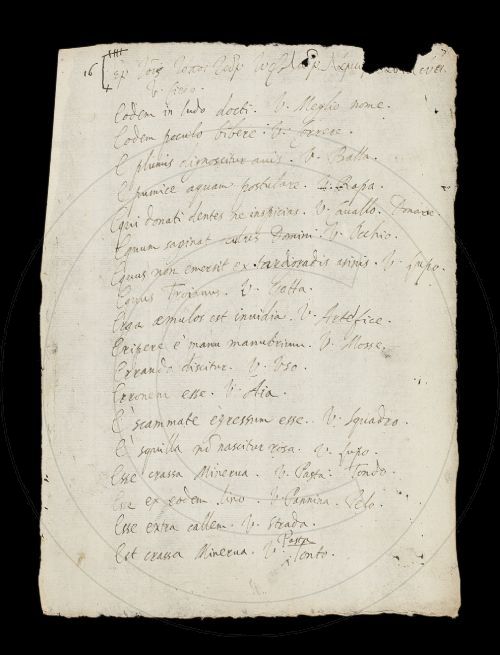 16
V. Cieco.
Eodem in ludo docti. V. Meglio nome.
Eodem poculo bibere. V. Torrice.
E plumis dignoscitur avis. V. Balla.
E pumice aquam postulare. V. Rapa.
Equi donati dentes ne inspicias. V. Cavallo. Donare.
Equum saginat oculus Domini. V. Occhio.
Equus non emersit ex asinis. V. Lupo.
Equus Troianus. V.
Erga æmulos est invidia. V. Artefice.
Eripere è manu manubrium. V. Mosse.
Errando discitur. V. Uso.
Erronem esse. V. Aia.
E scammate egressum esse. V. Squadro.
E squilla nõ nascitur rosa. V. Lupo.
Esse crassa Minerva. V. Pasta. Tondo.
Esse ex eodem lino. V. Pannina. Pelo.
Esse extra callem. V. Strada.
Est crassa Minerva. V. Pasta
Tonto.